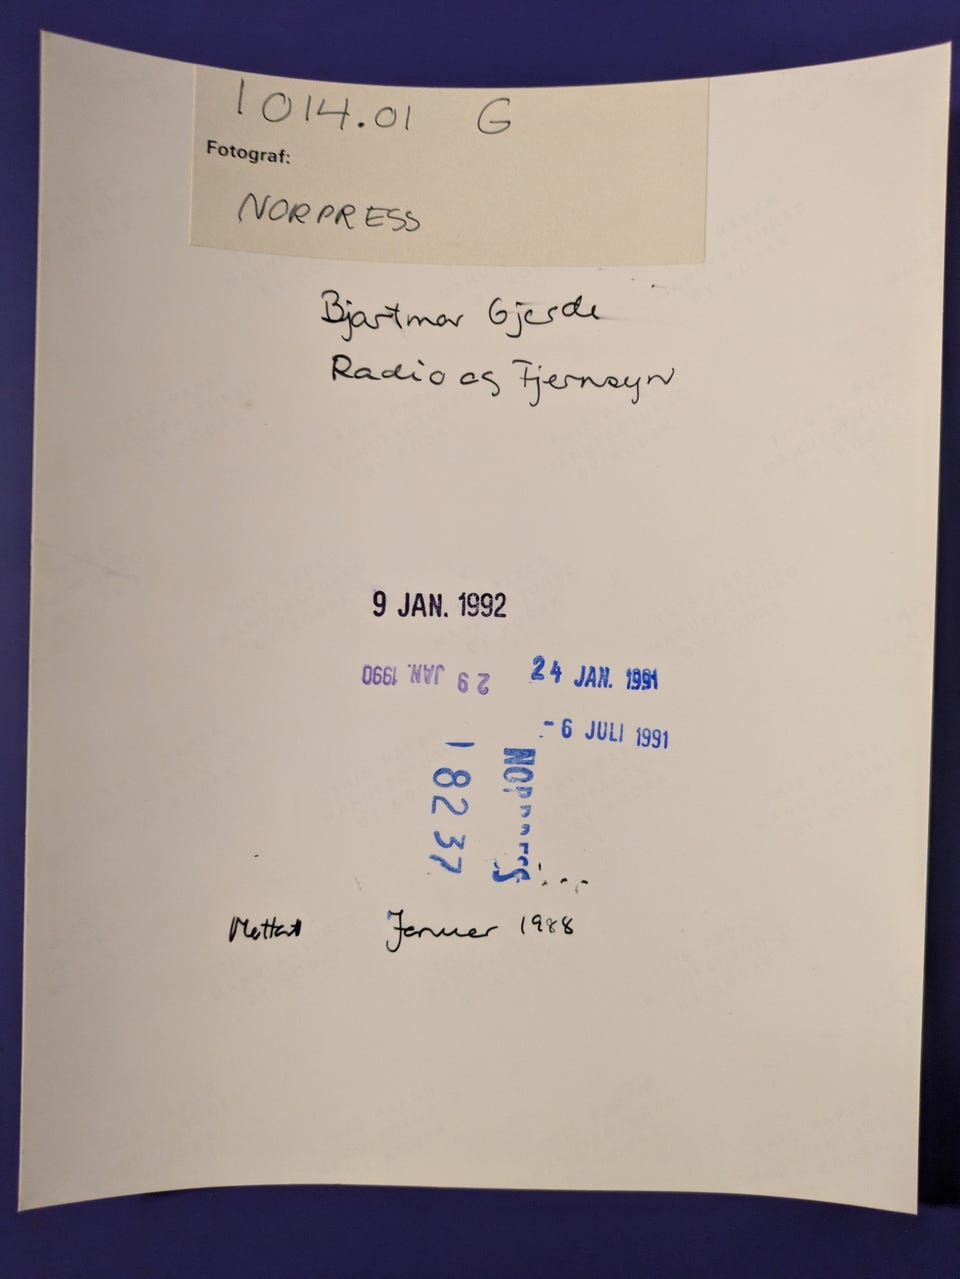 1014.01 G
Fotograf:
NORPRESS
Bjartmar Gjerde
Radio og Fjernsyn
9 JAN. 1992
29 JAN. 1990
24 JAN. 1991
- 6 JULI 1991
18237
Mottatt Januar 1988